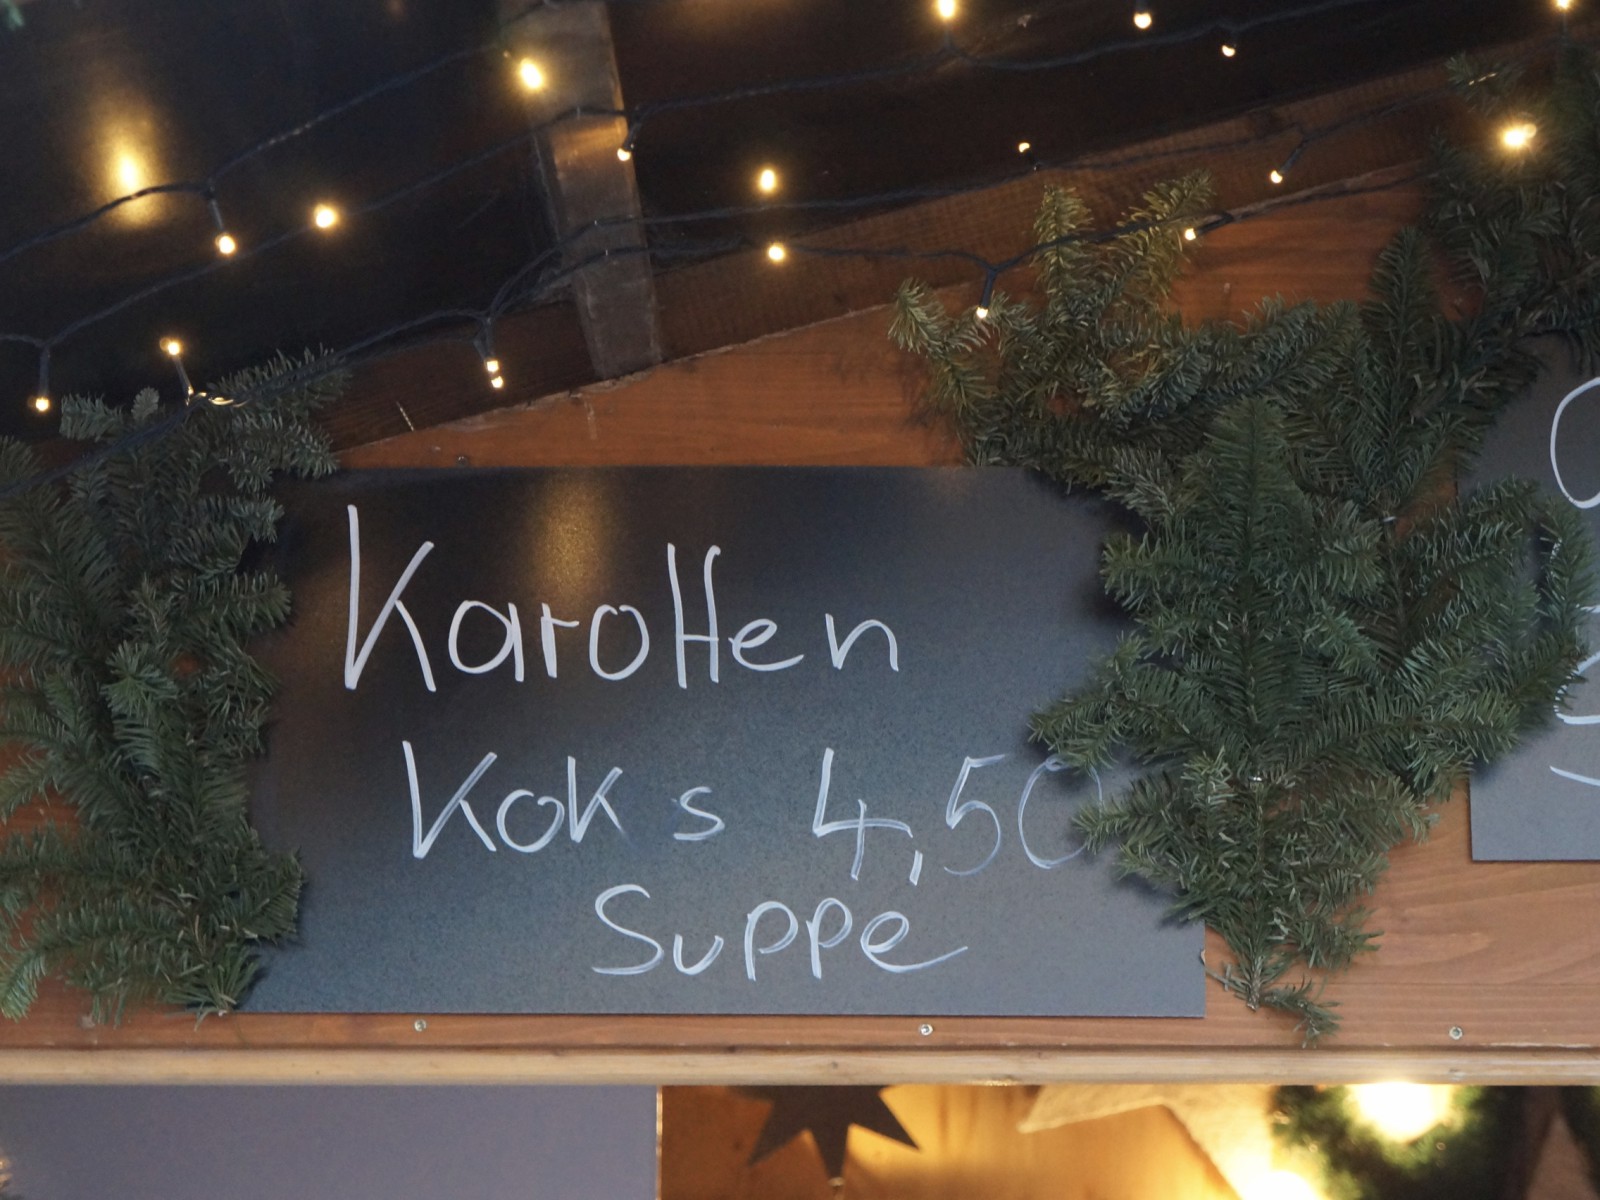 Karotten
Kok s 4,50
Suppe